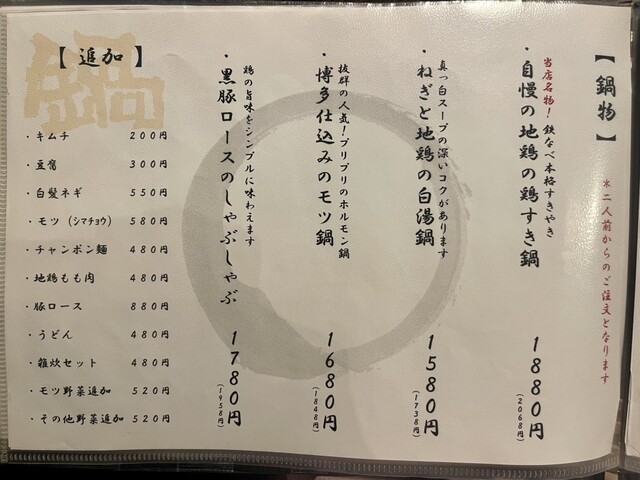 【鍋物】
※二人前からのご注文となります
当店名物！鉄なべ本格すきやき
・自慢の地鶏の鶏すき鍋
1880円
(2068円)
真っ白スープの深いコクがあります
・ねぎと地鶏の白湯鍋
1580円
(1738円)
抜群の人気！プリプリのホルモン鍋
・博多仕込みのモツ鍋
1680円
(1848円)
鶏の旨味をシンプルに味わえます
・黒豚ロースのしゃぶしゃぶ
1780円
(1958円)
鍋
【追加】
・キムチ 200円
・豆腐 300円
・白髪ネギ 550円
・モツ（シマチョウ） 580円
・チャンポン麺 480円
・地鶏もも肉 480円
・豚ロース 880円
・うどん 480円
・雑炊セット 480円
・モツ野菜追加 520円
・その他野菜追加 520円